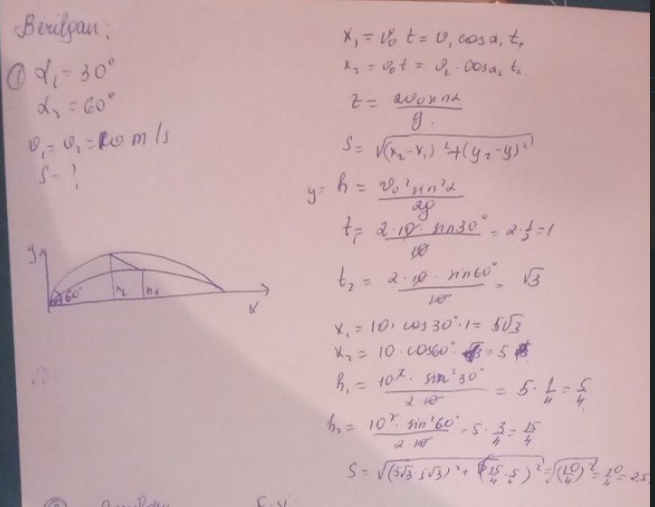 Berilgan:
① α₁ = 30°
α₂ = 60°
v₁ = v₂ = 10 m/s
S = ?
y
60°
h₂ h₁
x
x₁ = v₀ t = v₁ cosα₁ t₁
x₂ = v₀ t = v₂ · cosα₂ t₂
t = 2v₀ sinα / g
S = √((x₂-x₁)² + (y₂-y)²)
y = h = v₀² sin²α / 2g
t₁ = 2·10· sin30° / 10 = 2·1/2 = 1
t₂ = 2·10· sin60° / 10 = √3
x₁ = 10· cos30° ·1 = 5√3
x₂ = 10· cos60° · √3 = 5
h₁ = 10² · sin²30° / 2·10 = 5· 1/4 = 5/4
h₂ = 10² · sin²60° / 2·10 = 5· 3/4 = 15/4
S = √((5√3-5√3)² + (15/4 - 5/4)²) = √(10/4)² = 10/4 = 2,5
②